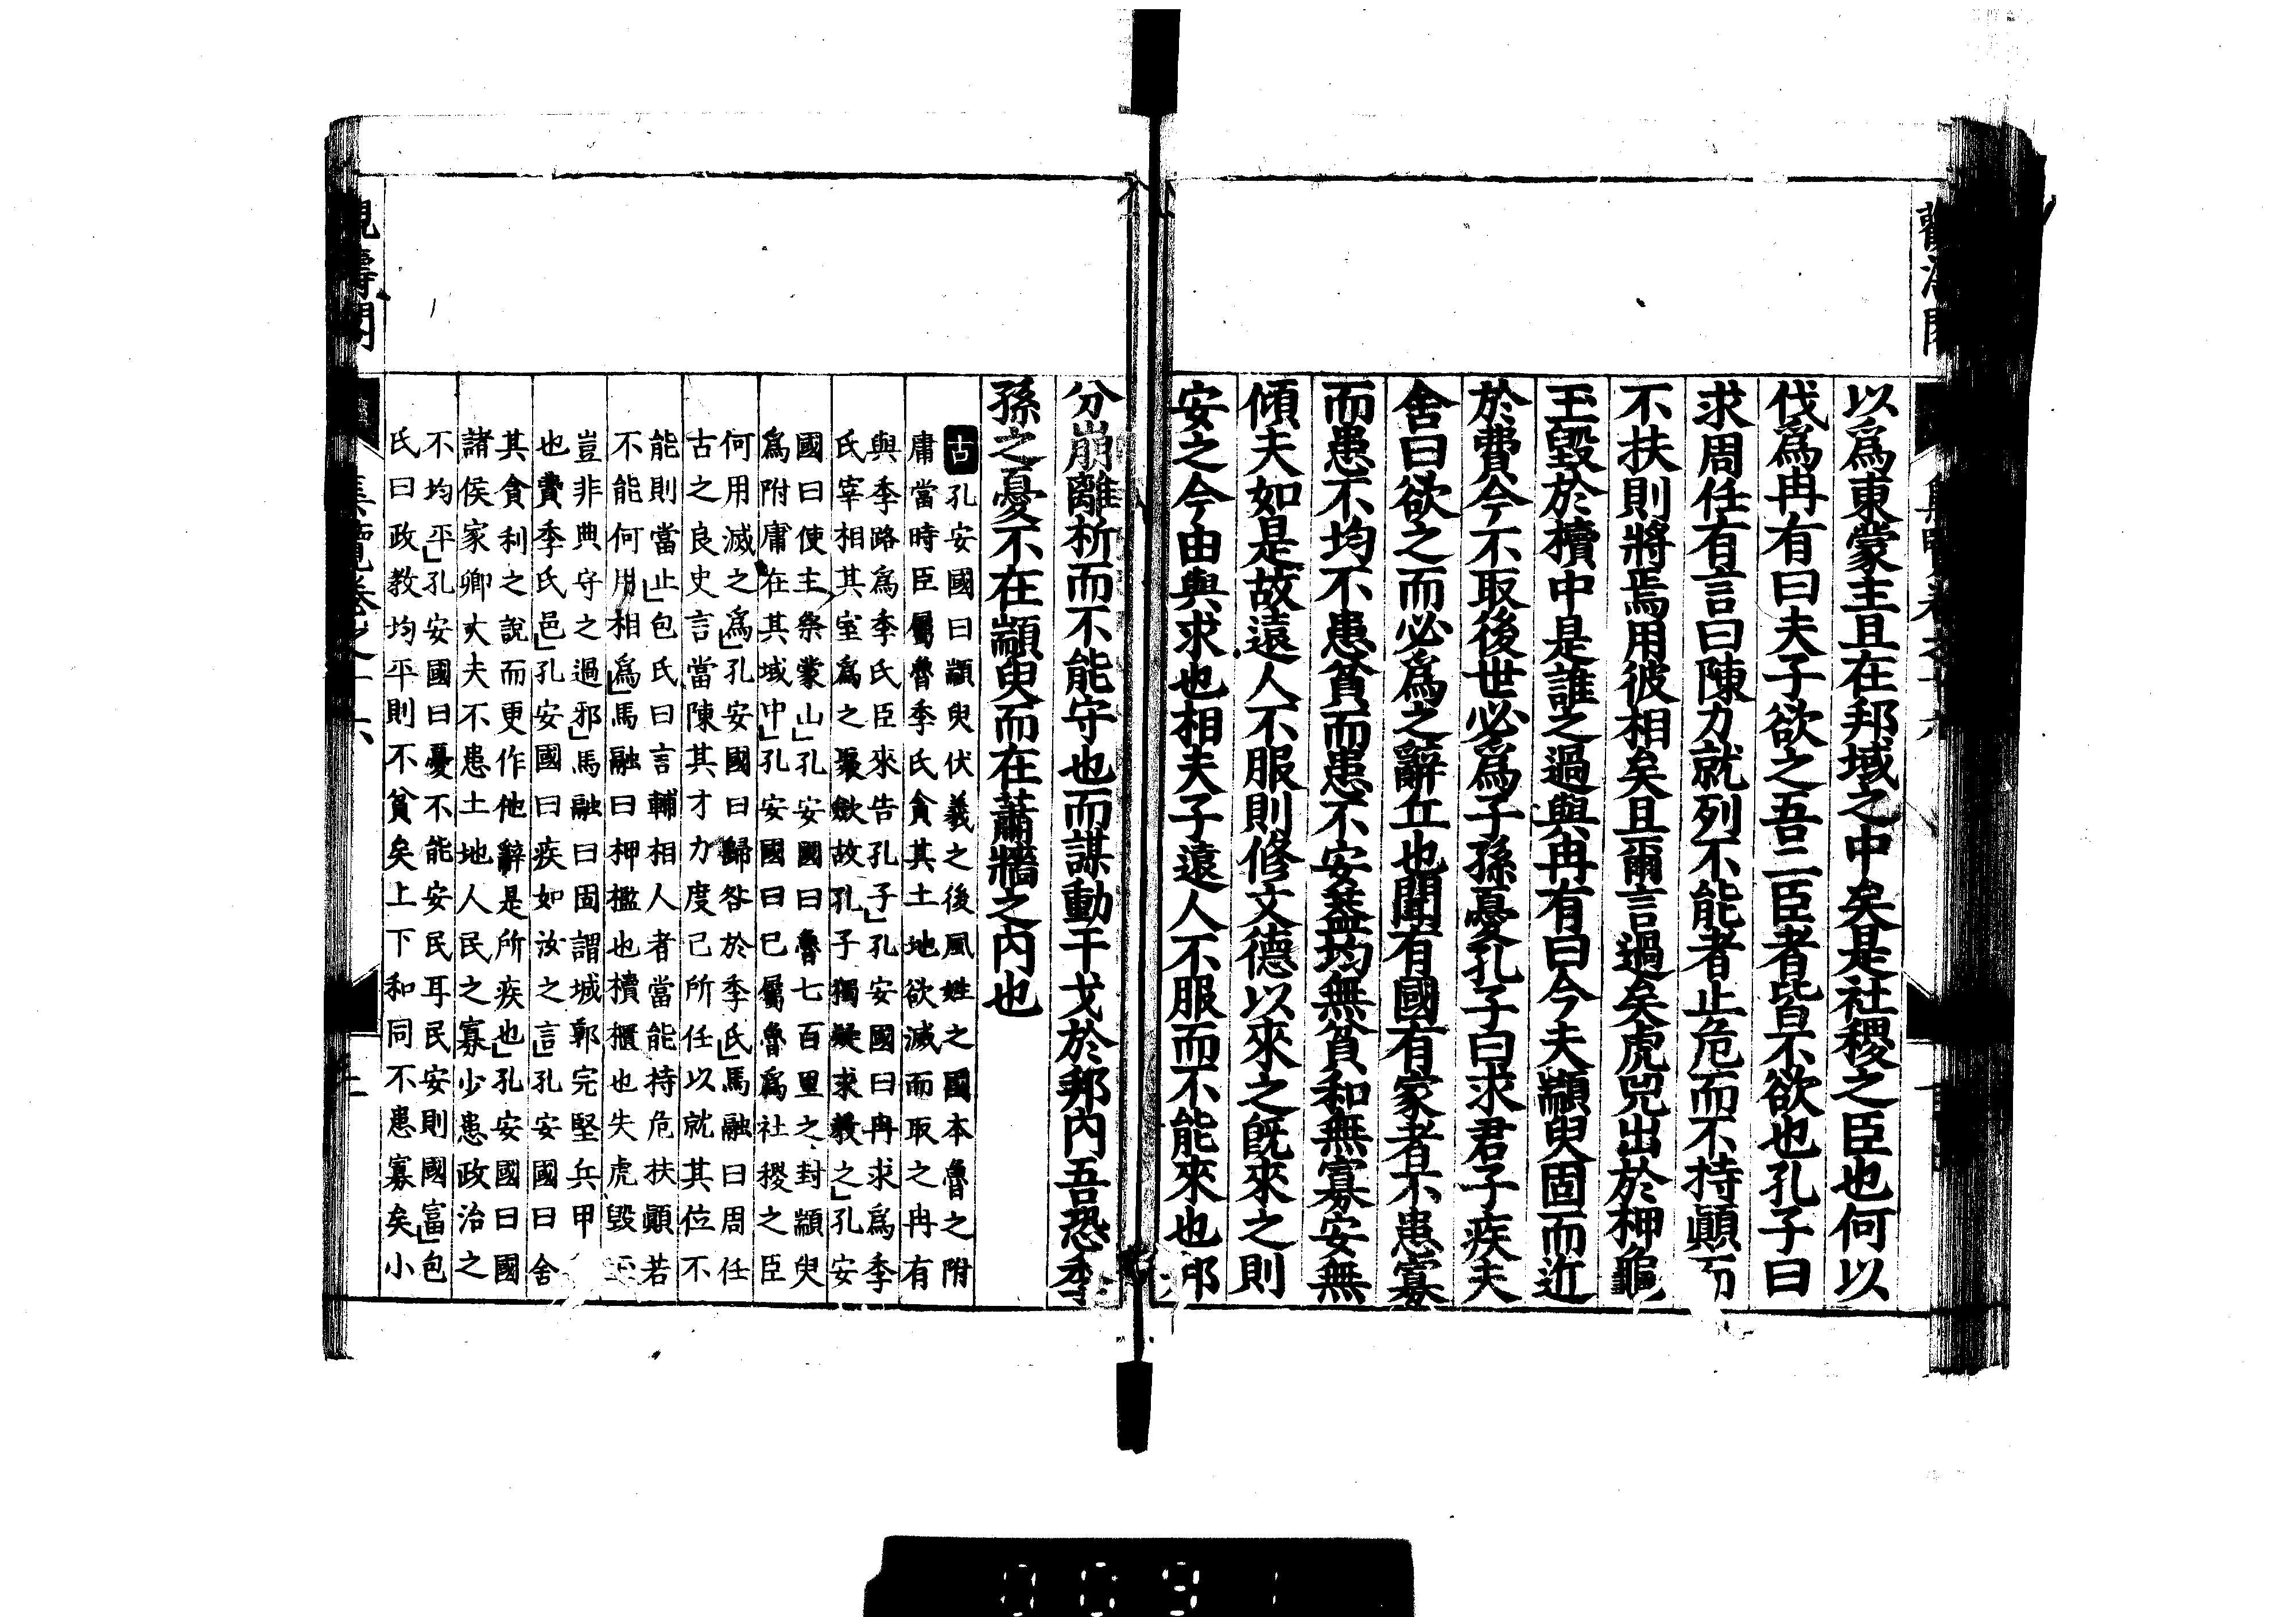 以爲東蒙主且在邦域之中矣是社稷之臣也何以
伐爲冉有曰夫子欲之吾二臣者皆不欲也孔子曰
求周任有言曰陳力就列不能者止危而不持顚而
不扶則將焉用彼相矣且爾言過矣虎兕出於柙龜
玉毀於櫝中是誰之過與冉有曰今夫顓臾固而近
於費今不取後世必爲子孫憂孔子曰求君子疾夫
舍曰欲之而必爲之辭丘也聞有國有家者不患寡
而患不均不患貧而患不安蓋均無貧和無寡安無
傾夫如是故遠人不服則修文德以來之旣來之則
安之今由與求也相夫子遠人不服而不能來也邦
分崩離析而不能守也而謀動干戈於邦內吾恐季
孫之憂不在顓臾而在蕭牆之內也
古孔安國曰顓臾伏羲之後風姓之國本魯之附
庸當時臣屬魯季氏貪其土地欲滅而取之冉有
與季路爲季氏臣來告孔子」孔安國曰冉求爲季
氏宰相其室爲之聚斂故孔子獨疑求教之」孔安
國曰使主祭蒙山」孔安國曰魯七百里之封顓臾
爲附庸在其域中」孔安國曰已屬魯爲社稷之臣
何用滅之爲」孔安國曰歸咎於季氏」馬融曰周任
古之良史言當陳其才力度己所任以就其位不
能則當止」包氏曰言輔相人者當能持危扶顚若
不能何用相爲」馬融曰柙檻也櫝櫃也失虎毀玉
豈非典守之過邪」馬融曰固謂城郭完堅兵甲
也費季氏邑」孔安國曰疾如汝之言」孔安國曰舍
其貪利之說而更作他辭是所疾也」孔安國曰國
諸侯家卿大夫不患土地人民之寡少患政治之
不均平」孔安國曰憂不能安民耳民安則國富」包
氏曰政教均平則不貧矣上下和同不患寡矣小
集覽卷之十六
0091